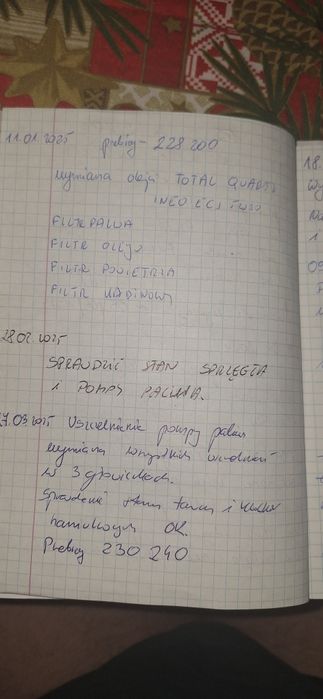 11.01.2025 przebieg - 228 200
wymiana oleju TOTAL QUARTZ
INEO ECS 5W30
FILTR PALIWA
FILTR OLEJU
FILTR POWIETRZA
FILTR KABINOWY
28.02.2025
SPRAWDZIĆ STAN SPRZĘGŁA
I POMPY PALIWA.
7.03.2025 Uszczelnienie pompy paliwa
wymiana wszystkich uszczelnień
w 3 głowicach.
Sprawdzenie stanu tarcz i klocków
hamulcowych OK.
Przebieg 230 240
18.